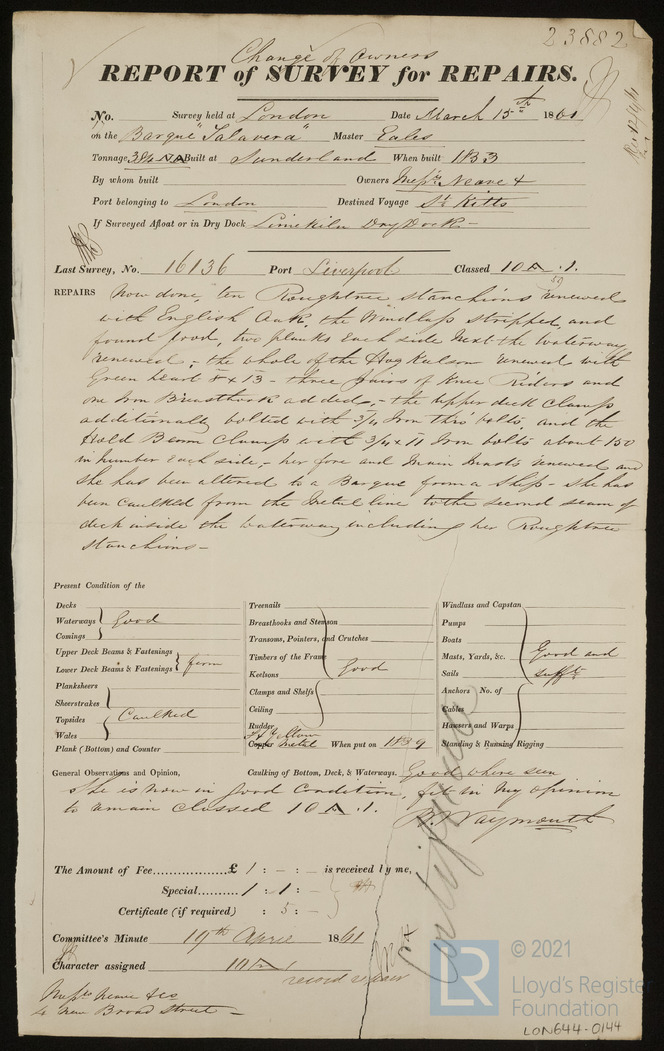 23882
Change of Owners
REPORT of SURVEY for REPAIRS.
No. Survey held at London Date March 15th 1861
on the Barque "Talavera" Master Eales
Tonnage 384 NA Built at Sunderland When built 1833
By whom built Owners Messrs Neave &
Port belonging to London Destined Voyage St Kitts
If Surveyed Afloat or in Dry Dock Limekiln Dry Dock -
Last Survey, No. 16136 Port Liverpool Classed 10 A .1.
59
REPAIRS Now done, ten Roughtree stanchions renewed
with English Oak, the Windlass stripped and
found good, two planks each side next the waterway
renewed, - the whole of the Hog Kelson renewed with
Green heart 8 x 13 - three pairs of Knee Riders and
one Iron Breasthook added, - the upper deck Clamps
additionally bolted with 3/4 Iron thro' bolts, and the
Hold Beam Clamps with 3/4 x 11 Iron bolts about 150
in number each side, - her fore and Main Masts renewed and
she has been altered to a Barque from a Ship - she has
been caulked from the metal line to the second seam of
deck inside the waterway including her Roughtree
stanchions -
Present Condition of the
Decks
Waterways Good
Comings
Upper Deck Beams & Fastenings
Lower Deck Beams & Fastenings firm
Planksheers
Sheerstrakes
Topsides Caulked
Wales
Plank (Bottom) and Counter
Treenails
Breasthooks and Stemson
Transoms, Pointers, and Crutches
Timbers of the Frame
Keelsons Good
Clamps and Shelfs
Ceiling
Rudder
Yellow
Copper metal When put on 1859
Windlass and Capstan
Pumps
Boats
Masts, Yards, &c. Good and
Sails sufft
Anchors No. of
Cables
Hawsers and Warps
Standing & Running Rigging
General Observations and Opinion, Caulking of Bottom, Deck, & Waterways. Good where seen
She is now in good Condition, fit in my opinion
to remain classed 10 A .1.
Waymouth
The Amount of Fee £ 1 : - : - is received by me,
Special 1 : 1 : -
Certificate (if required) : 5 : -
Committee's Minute 19th April 1861
Character assigned 10 A 1
record repair
Messrs Neave & Co
New Broad Street -
Certificate
LR
© 2021
Lloyd's Register
Foundation
LON644-0144